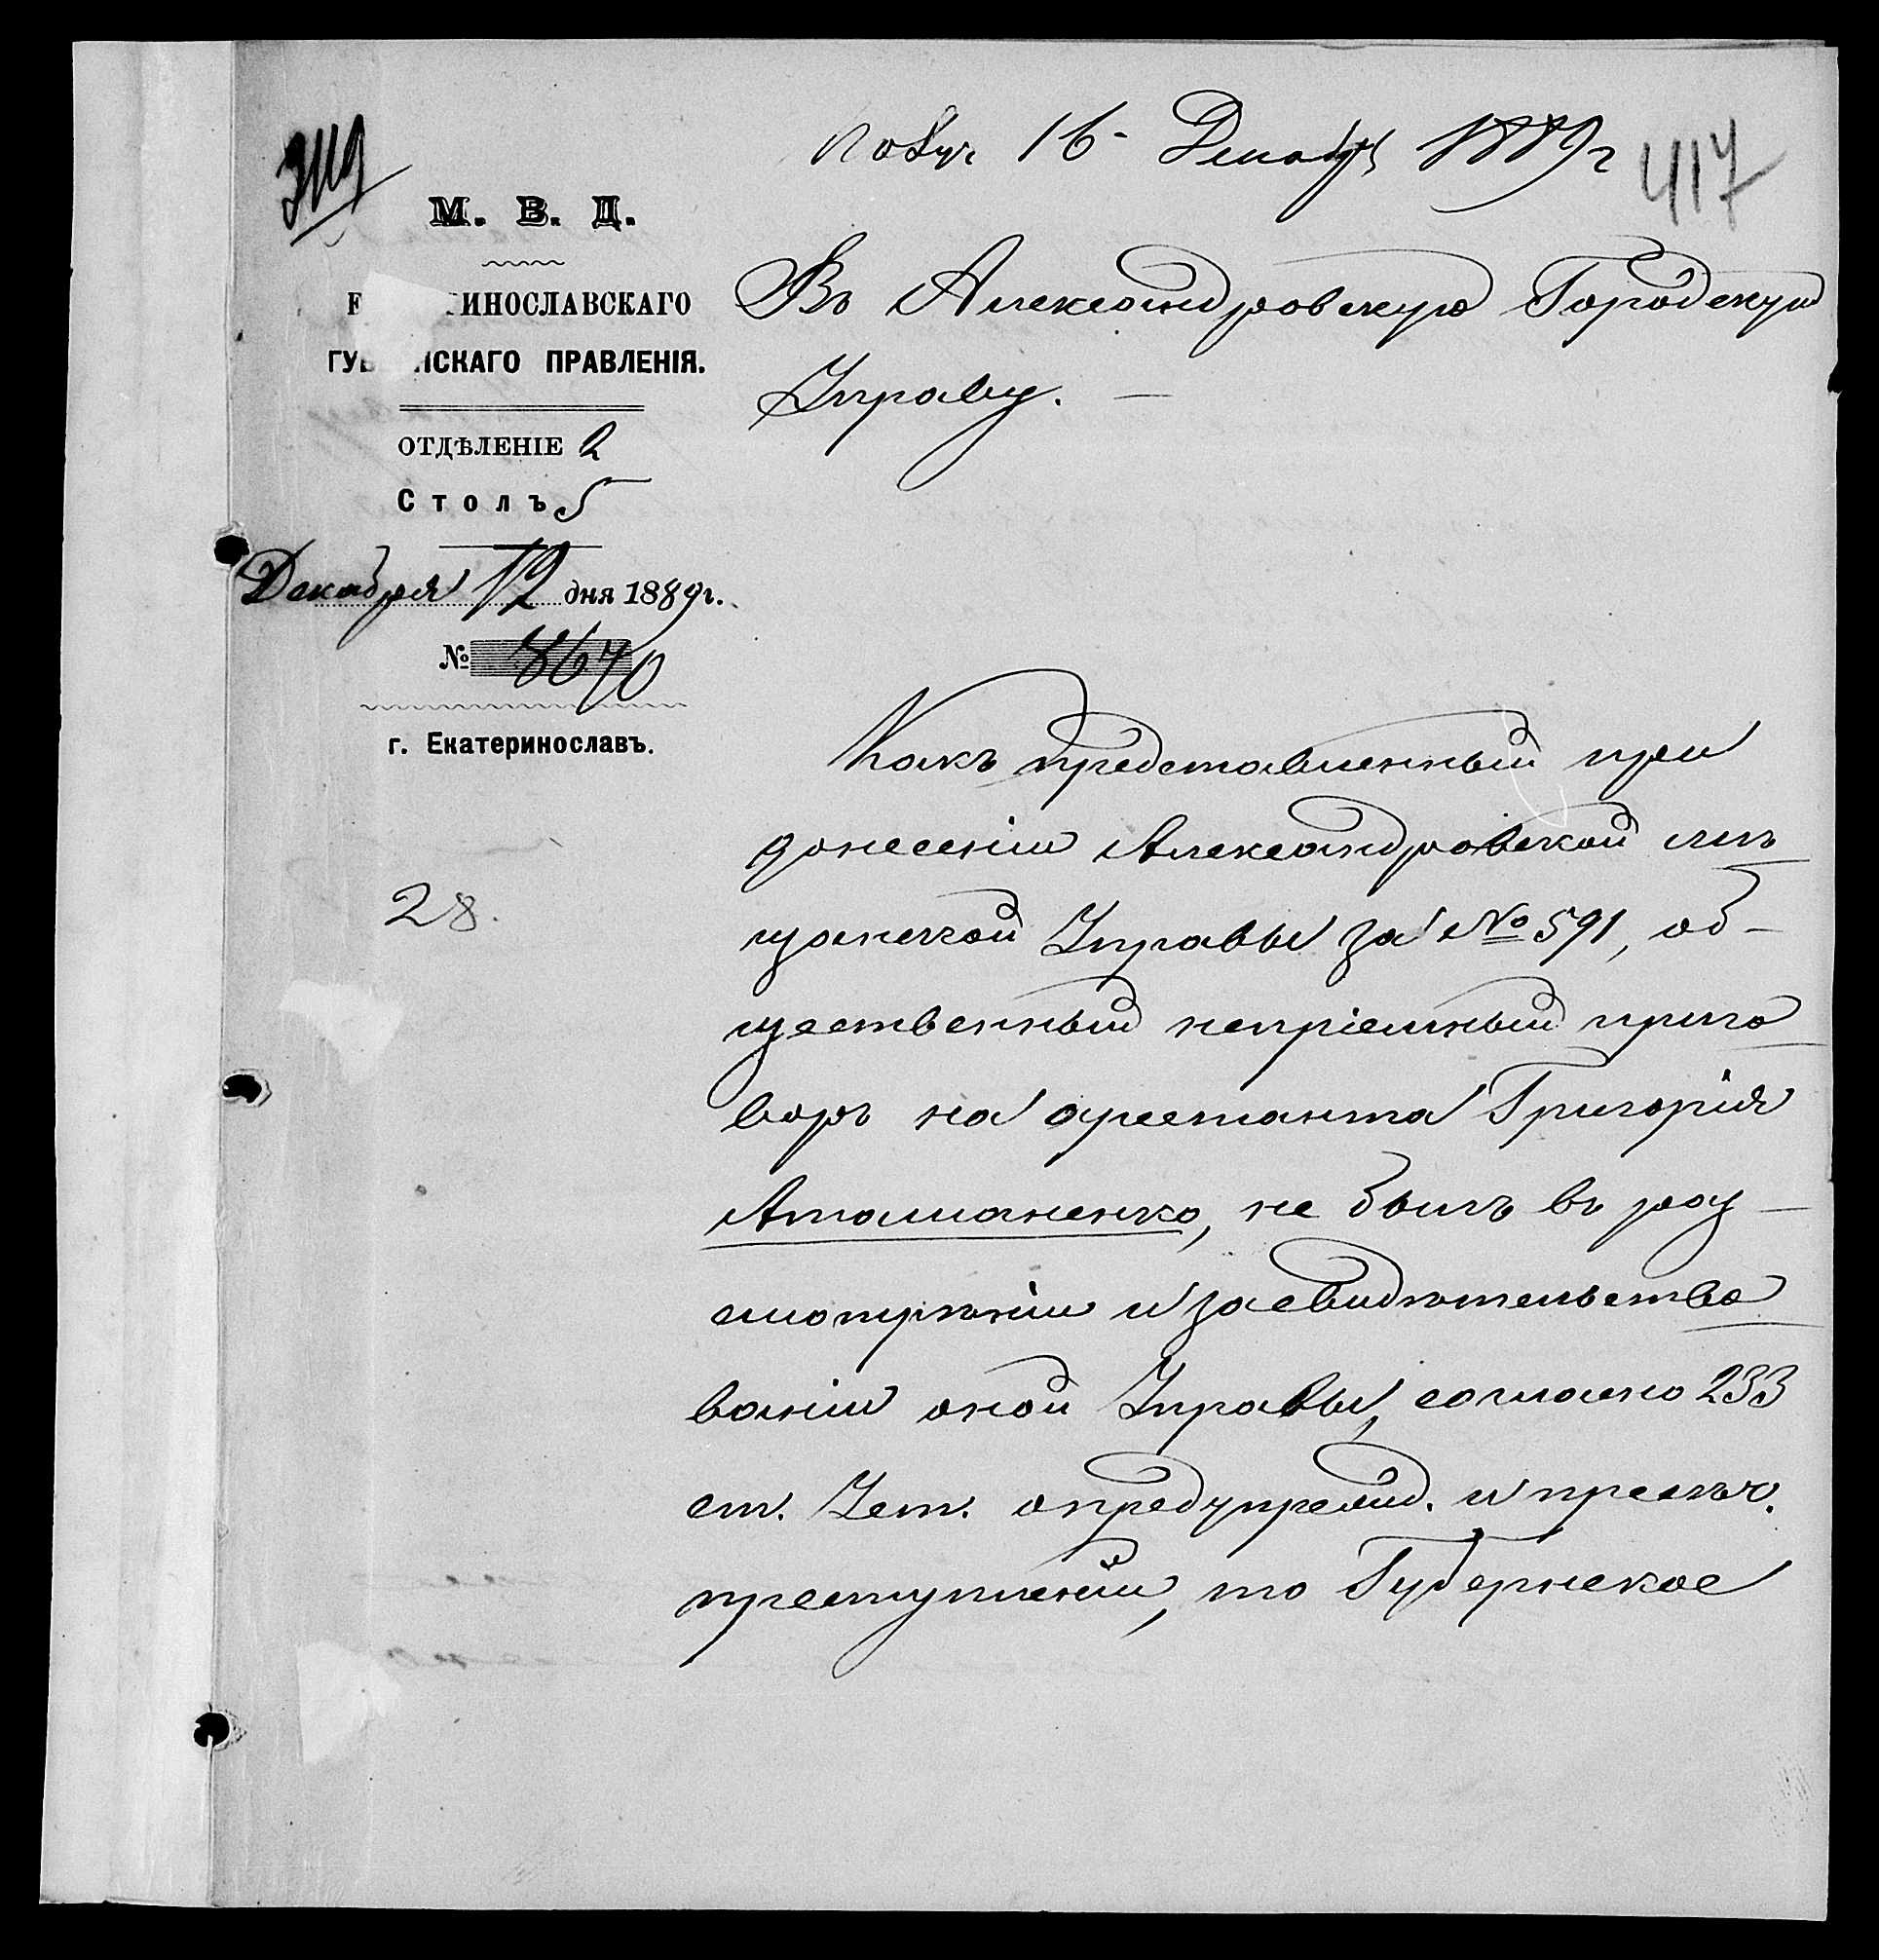 Получ. 16 Декабря 1889 г
417
3119
М. В. Д.
ИНОСЛАВСКАГО
ГУБ НСКАГО ПРАВЛЕНІЯ.
ОТДѢЛЕНІЕ 2
Столъ 5
Декабря 12 дня 1889 г.
№ 8640
г. Екатеринославъ.
28.
Въ Александровскую Городскую
Управу. —
Какъ представленный при
донесеніи Александровской мѣ
щанской Управы за № 591, об-
щественный непріемный приго
воръ на арестанта Григорія
Атаманенко, не былъ въ раз-
смотрѣніи и засвидѣтельство
ваніи оной Управы, согласно 233
ст. Уст. о предупрежд. и пресѣч.
преступленій, то Губернское